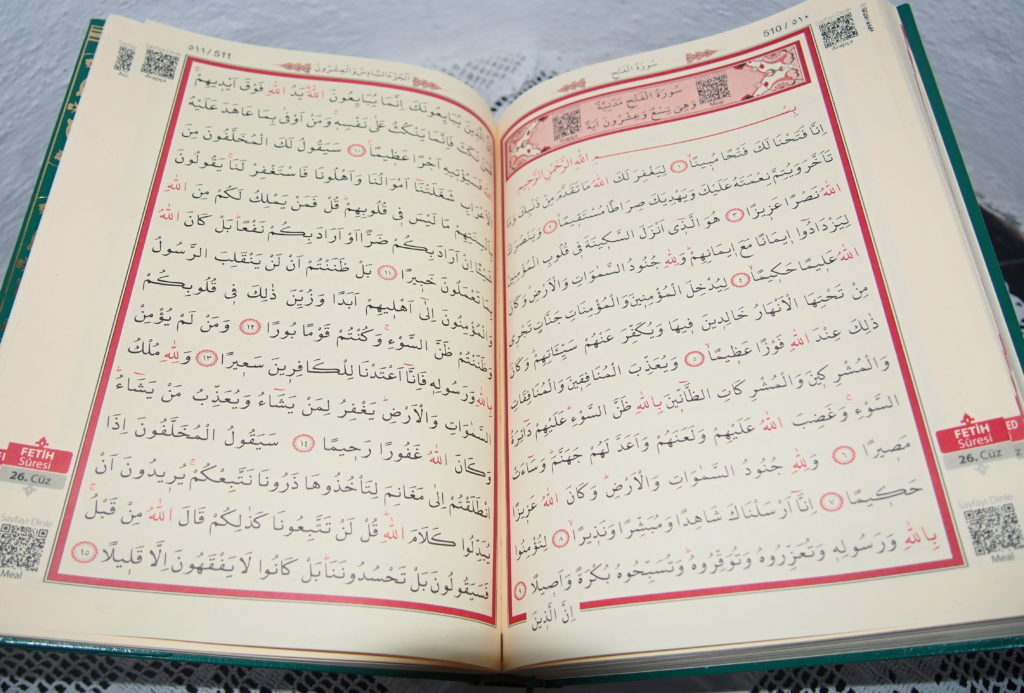 510 / ٥١٠
سُورَةُ الْفَتْحِ
Sayfayı Dinle
Arapça
سُورَةُ الْفَتْحِ مَدَنِيَّةٌ
وَهِيَ تِسْعٌ وَعِشْرُونَ اٰيَةً
Meal
بِسْمِ اللّٰهِ الرَّحْمٰنِ الرَّحِيمِ
اِنَّا فَتَحْنَا لَكَ فَتْحًا مُبِينًاۙ ١ لِيَغْفِرَ لَكَ اللّٰهُ مَا تَقَدَّمَ مِنْ ذَنْبِكَ وَمَا
تَاَخَّرَ وَيُتِمَّ نِعْمَتَهُ عَلَيْكَ وَيَهْدِيَكَ صِرَاطًا مُسْتَقِيمًاۙ ٢ وَيَنْصُرَكَ
اللّٰهُ نَصْرًا عَزِيزًا ٣ هُوَ الَّذٓي اَنْزَلَ السَّكِينَةَ فِي قُلُوبِ الْمُؤْمِنِينَ
لِيَزْدَادُٓوا اِيمَانًا مَعَ اِيمَانِهِمْۜ وَلِلّٰهِ جُنُودُ السَّمٰوَاتِ وَالْاَرْضِۜ وَكَانَ
اللّٰهُ عَلِيمًا حَكِيمًاۙ ٤ لِيُدْخِلَ الْمُؤْمِنِينَ وَالْمُؤْمِنَاتِ جَنَّاتٍ تَجْرِي
مِنْ تَحْتِهَا الْاَنْهَارُ خَالِدِينَ فِيهَا وَيُكَفِّرَ عَنْهُمْ سَيِّـَٔاتِهِمْۜ وَكَانَ
ذٰلِكَ عِنْدَ اللّٰهِ فَوْزًا عَظِيمًاۙ ٥ وَيُعَذِّبَ الْمُنَافِقِينَ وَالْمُنَافِقَاتِ
وَالْمُشْرِكِينَ وَالْمُشْرِكَاتِ الظَّٓانِّينَ بِاللّٰهِ ظَنَّ السَّوْءِۜ عَلَيْهِمْ دَٓائِرَةُ
السَّوْءِۚ وَغَضِبَ اللّٰهُ عَلَيْهِمْ وَلَعَنَهُمْ وَاَعَدَّ لَهُمْ جَهَنَّمَۜ وَسَٓاءَتْ
مَصِيرًا ٦ وَلِلّٰهِ جُنُودُ السَّمٰوَاتِ وَالْاَرْضِۜ وَكَانَ اللّٰهُ عَزِيزًا
حَكِيمًا ٧ اِنَّٓا اَرْسَلْنَاكَ شَاهِدًا وَمُبَشِّرًا وَنَذِيرًاۙ ٨ لِتُؤْمِنُوا
بِاللّٰهِ وَرَسُولِهِ وَتُعَزِّرُوهُ وَتُوَقِّرُوهُۜ وَتُسَبِّحُوهُ بُكْرَةً وَاَصِيلًا ٩
اِنَّ الَّذِينَ
FETİH
Sûresi
26. Cüz
Sayfayı Dinle
Meal
٥١١ / 511
اَلْجُزْءُ السَّادِسُ وَالْعِشْرُونَ
Sayfayı Dinle
Arapça
يُبَايِعُونَكَ اِنَّمَا يُبَايِعُونَ اللّٰهَۜ يَدُ اللّٰهِ فَوْقَ اَيْدِيهِمْۚ
فَمَنْ نَكَثَ فَاِنَّمَا يَنْكُثُ عَلٰى نَفْسِهِۚ وَمَنْ اَوْفٰى بِمَا عَاهَدَ عَلَيْهُ
اللّٰهَ فَسَيُؤْتِيهِ اَجْرًا عَظِيمًا ١٠ سَيَقُولُ لَكَ الْمُخَلَّفُونَ مِنَ
الْاَعْرَابِ شَغَلَتْنَٓا اَمْوَالُنَا وَاَهْلُونَا فَاسْتَغْفِرْ لَنَاۚ يَقُولُونَ
بِاَلْسِنَتِهِمْ مَا لَيْسَ فِي قُلُوبِهِمْۜ قُلْ فَمَنْ يَمْلِكُ لَكُمْ مِنَ اللّٰهِ
شَيْـًٔا اِنْ اَرَادَ بِكُمْ ضَرًّا اَوْ اَرَادَ بِكُمْ نَفْعًاۜ بَلْ كَانَ اللّٰهُ
بِمَا تَعْمَلُونَ خَبِيرًا ١١ بَلْ ظَنَنْتُمْ اَنْ لَنْ يَنْقَلِبَ الرَّسُولُ
وَالْمُؤْمِنُونَ اِلٰٓى اَهْلِيهِمْ اَبَدًا وَزُيِّنَ ذٰلِكَ فِي قُلُوبِكُمْ
وَظَنَنْتُمْ ظَنَّ السَّوْءِۚ وَكُنْتُمْ قَوْمًا بُورًا ١٢ وَمَنْ لَمْ يُؤْمِنْ
بِاللّٰهِ وَرَسُولِهِ فَاِنَّٓا اَعْتَدْنَا لِلْكَافِرِينَ سَعِيرًا ١٣ وَلِلّٰهِ مُلْكُ
السَّمٰوَاتِ وَالْاَرْضِۜ يَغْفِرُ لِمَنْ يَشَٓاءُ وَيُعَذِّبُ مَنْ يَشَٓاءُۜ
وَكَانَ اللّٰهُ غَفُورًا رَحِيمًا ١٤ سَيَقُولُ الْمُخَلَّفُونَ اِذَا
انْطَلَقْتُمْ اِلٰى مَغَانِمَ لِتَأْخُذُوهَا ذَرُونَا نَتَّبِعْكُمْۚ يُرِيدُونَ اَنْ
يُبَدِّلُوا كَلَامَ اللّٰهِۜ قُلْ لَنْ تَتَّبِعُونَا كَذٰلِكُمْ قَالَ اللّٰهُ مِنْ قَبْلُۚ
فَسَيَقُولُونَ بَلْ تَحْسُدُونَنَاۜ بَلْ كَانُوا لَا يَفْقَهُونَ اِلَّا قَلِيلًا ١٥
FETİH
Sûresi
26. Cüz
Sayfayı Dinle
Meal